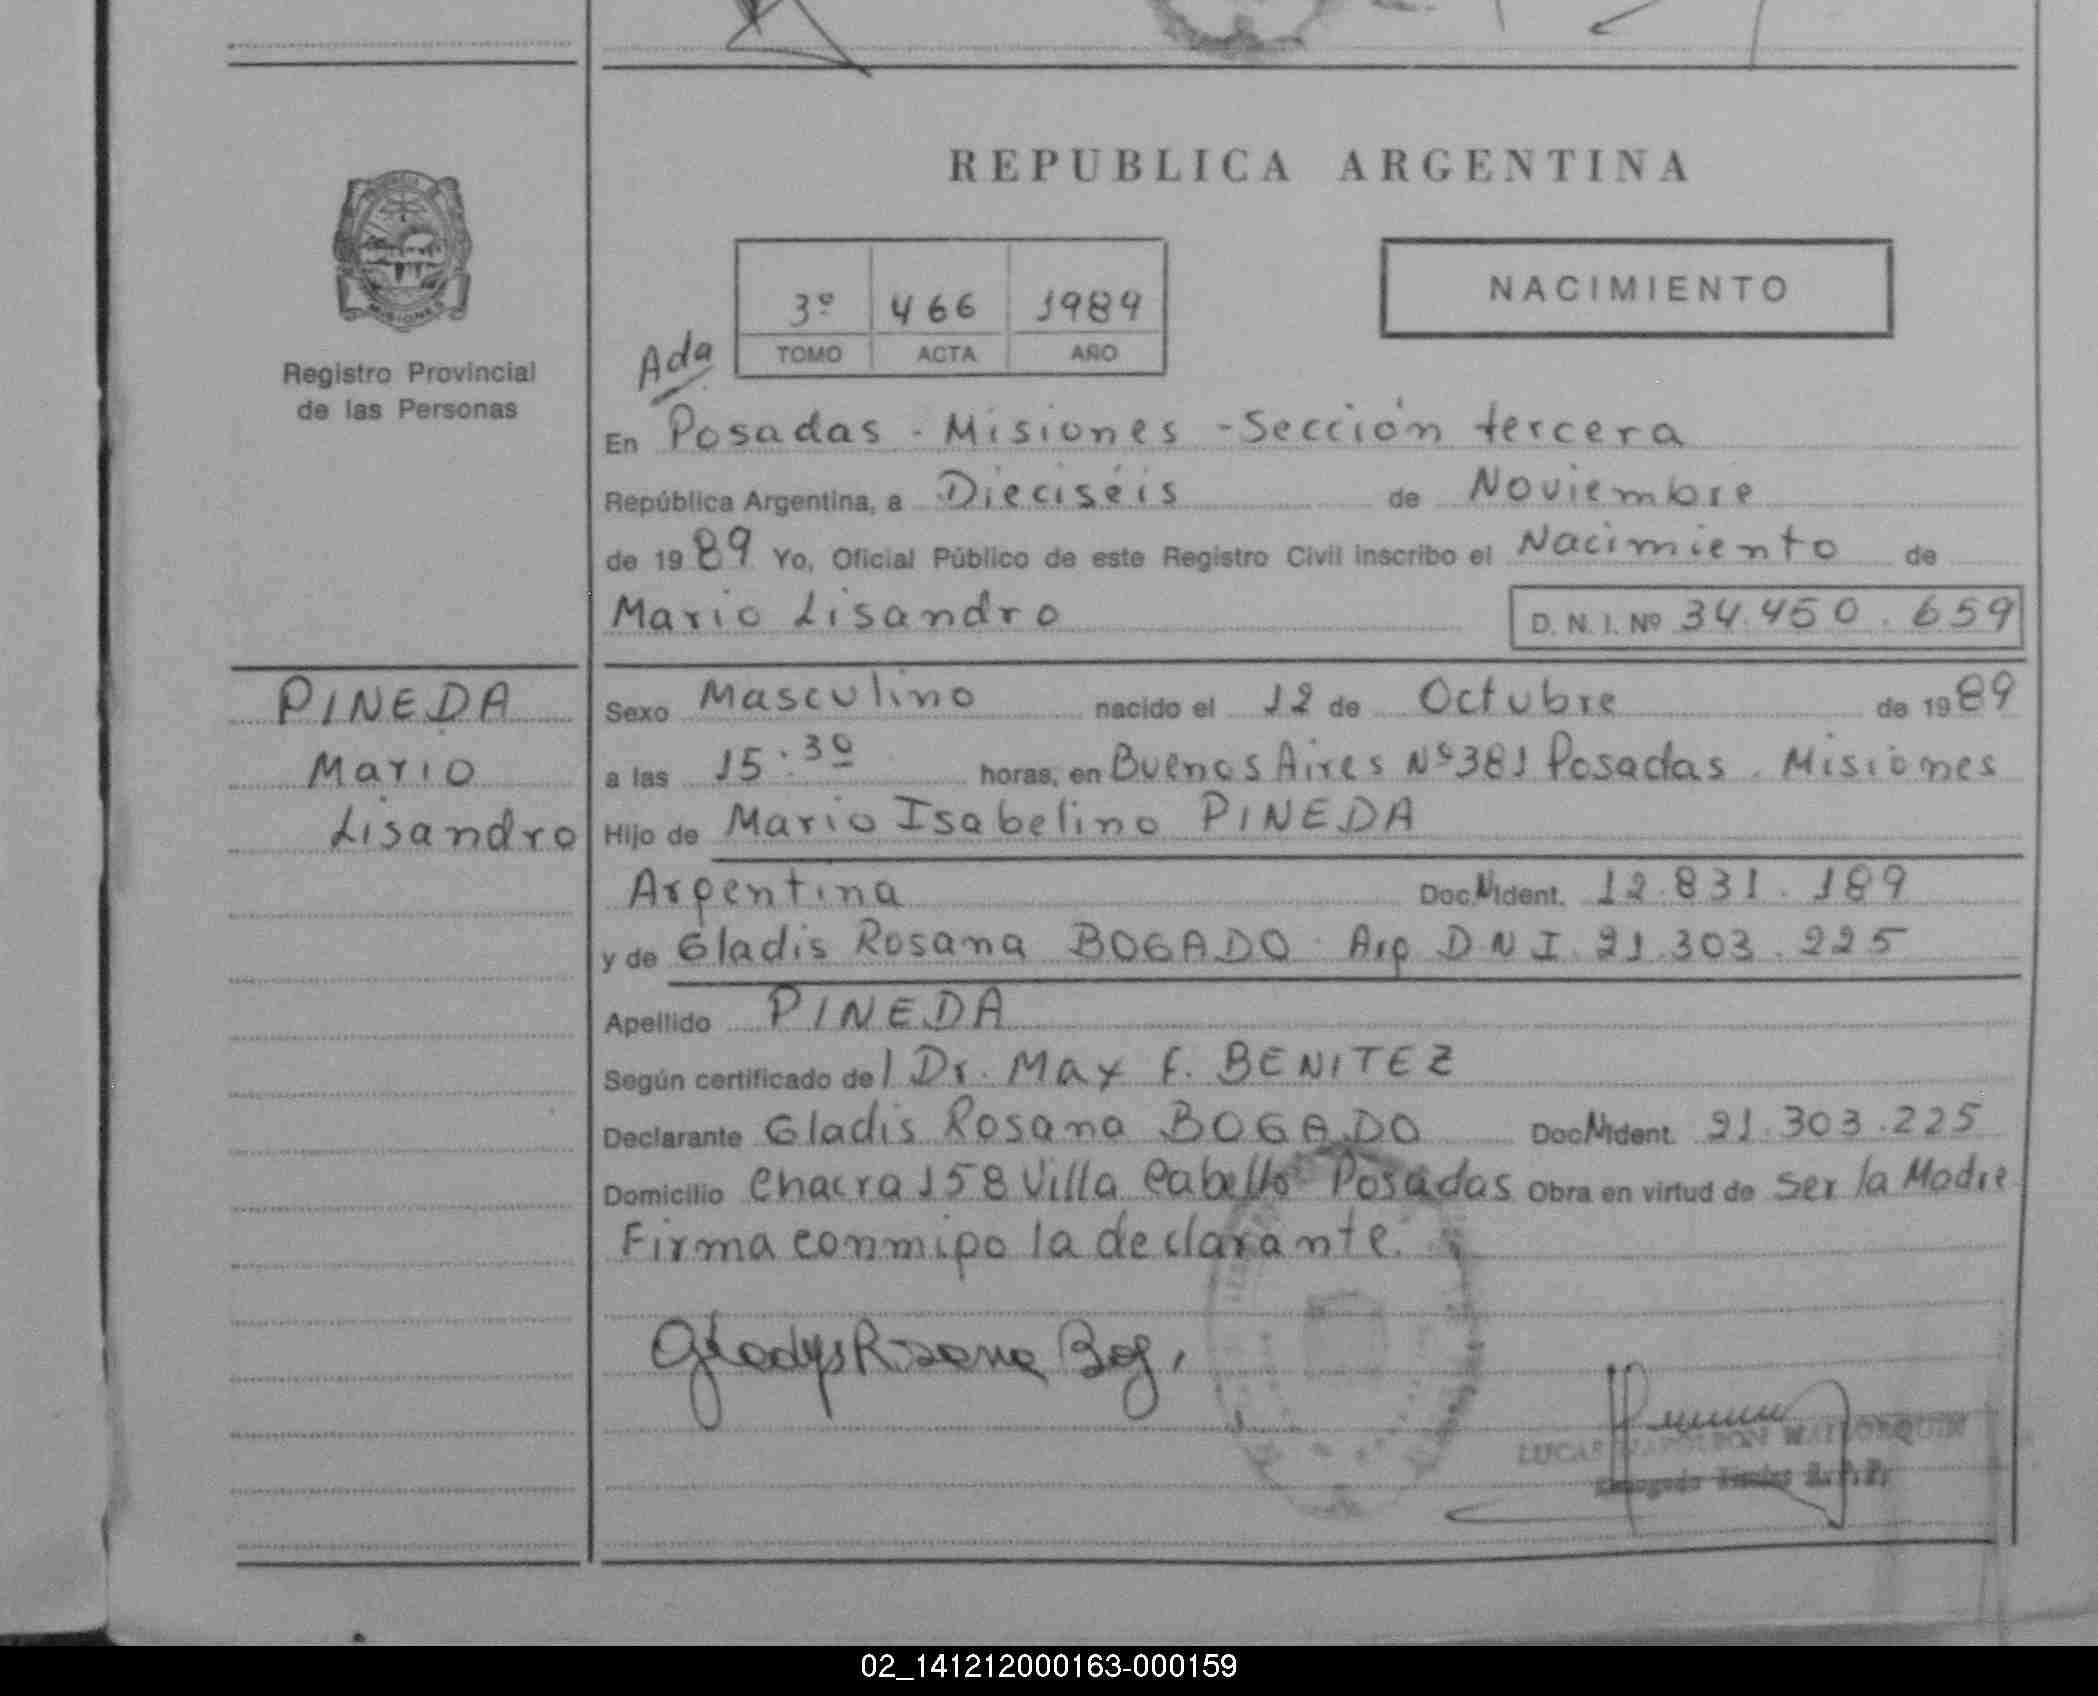 REPUBLICA ARGENTINA
3º 466 1989
TOMO ACTA AÑO
NACIMIENTO
Ada
Registro Provincial
de las Personas
En Posadas - Misiones - Sección tercera
República Argentina, a Dieciséis de Noviembre
de 1989 Yo, Oficial Público de este Registro Civil inscribo el Nacimiento de
Mario Lisandro D. N. I. Nº 34.450.659
PINEDA
Mario
Lisandro
Sexo Masculino nacido el 12 de Octubre de 1989
a las 15:30 horas, en Buenos Aires Nº 381 Posadas. Misiones
Hijo de Mario Isabelino PINEDA
Argentina Doc.N.Ident. 12.831.189
y de Gladis Rosana BOGADO Arg D.N.I. 21.303.225
Apellido PINEDA
Según certificado del Dr. Max F. BENITEZ
Declarante Gladis Rosana BOGADO Doc.N.Ident. 21.303.225
Domicilio Chacra 158 Villa Cabello Posadas Obra en virtud de ser la Madre
Firma conmigo la declarante.
Gladys Rosana Bog.
LUCAS NAPOLEON MALLORQUIN
R.P.P.
02_141212000163-000159